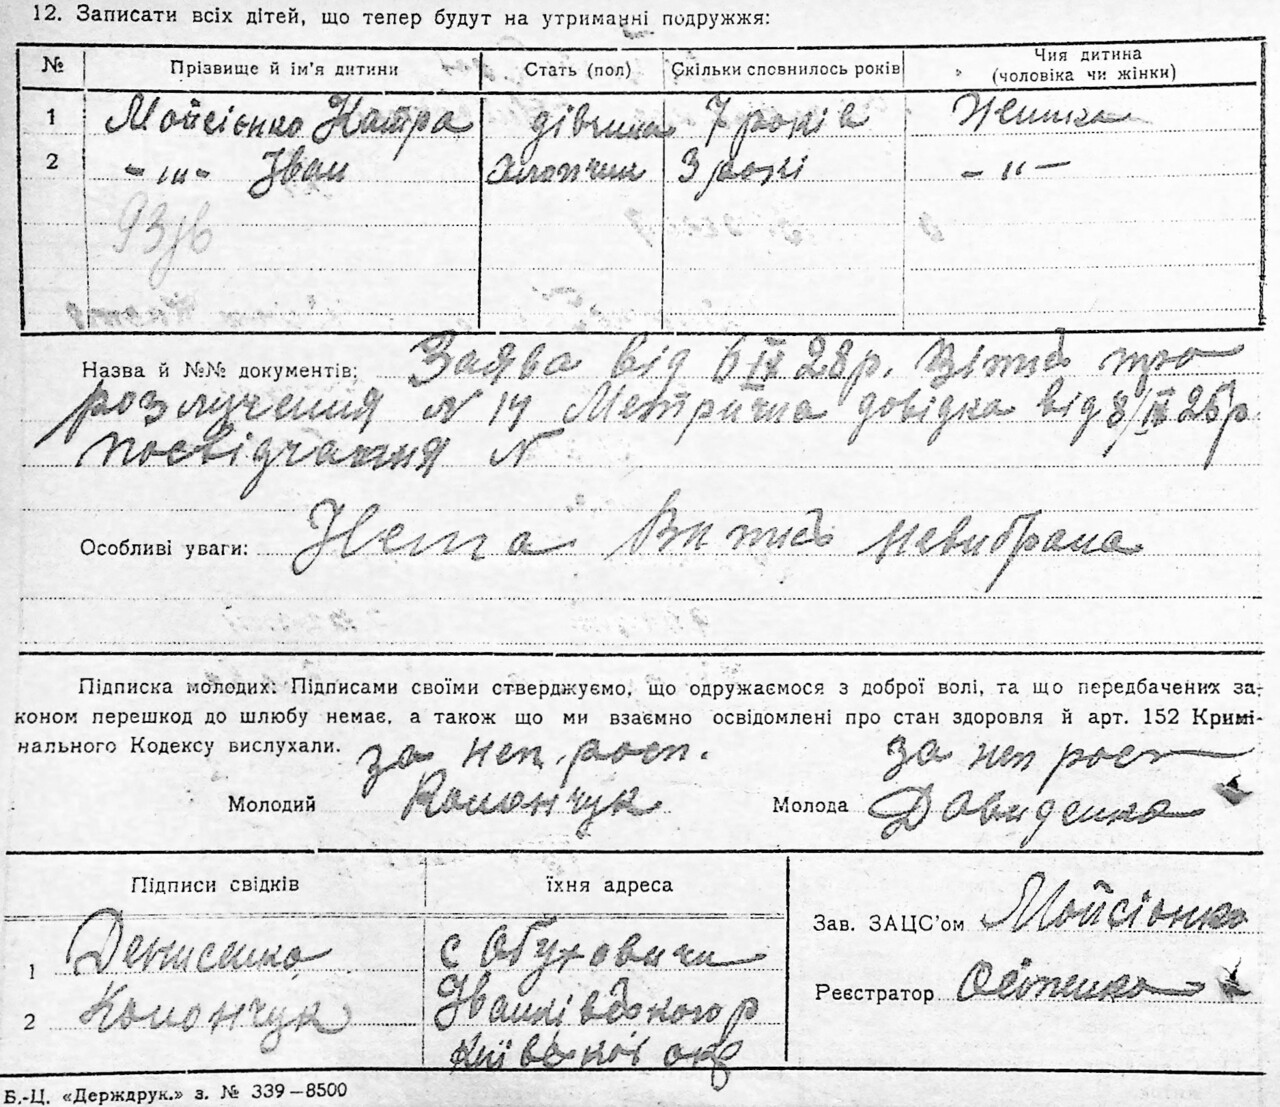 12. Записати всіх дітей, що тепер будут на утриманні подружжя:
№ Прізвище й ім'я дитини Стать (пол) Скільки сповнилось років Чия дитина (чоловіка чи жінки)
1 Мойсієнко дівчина 7 років Жінки
2 -„- Іван хлопчик 3 рокі -„-
Назва й №№ документів: Заява від 6 IX 28 р. Вітяг про
розлучения N 14 Метрична довідка від 8/IX 28 р
посвідчання N
Особливі уваги: Нема Витяг невибрана
Підписка молодих: Підписами своїми стверджуємо, що одружаємося з доброї волі, та що передбачених за-
коном перешкод до шлюбу немає, а також що ми взаємно освідомлені про стан здоровля й арт. 152 Кримі-
нального Кодексу вислухали.
за неп. росп. за неп росп
Молодий Колончук Молода Давиденко
Підписи свідків їхня адреса
Зав. ЗАЦС'ом Мойсієнко
1 Денисенко с Обуховичи
Реєстратор Осипенко
2 Колончук Іванківського р
Київської окр
Б.-Ц. «Держдрук.» з. № 339—8500